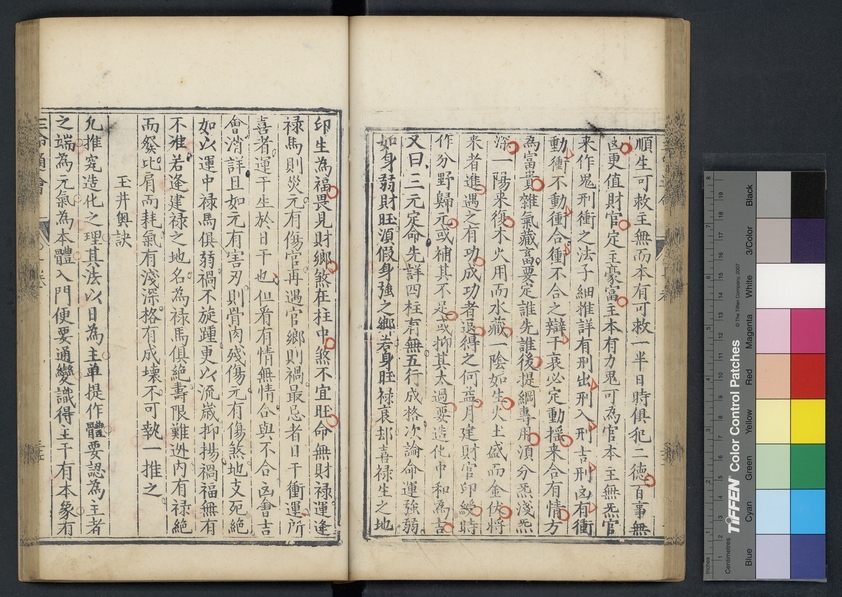 順生可救主無而本有可救一半日時俱犯二德百事無
凶更值財官定主豪富主本有力鬼可為官本主無炁官
來作鬼刑衝之法子細推詳有刑出刑入刑吉刑凶有衝
動衝不動衝合衝不合之辯干衰必定動搖來合有情方
為富貴雜氣藏畜要定誰先誰後提綱專用須分炁淺炁
深一陽來復木火用而水藏一陰如生火土盛而金伏將
來者進遇之有功成功者退得之何益月建財官印綬時
作分野歸元或補其不足或抑其太過要造化中和為吉
又曰三元定命先詳四柱有無五行成格次論命運強弱
如身弱財旺須假身強之鄉若身旺祿衰却喜祿生之地
印生為福畏見財鄉煞在柱中煞不宜旺命無財祿運逢
祿馬則災元有傷官再遇官鄉則禍最忌者日干衝運所
喜者運干生於日干也但看有情無情合與不合凶會吉
會消詳且如元有害刃則骨肉殘傷元有傷煞地支死絕
如以運中祿馬俱弱禍不旋踵更以流歲抑揚禍福無有
不准若逢建祿之地名為祿馬俱絕壽限難迯內有祿絕
而發比肩而耗氣有淺深格有成壞不可執一推之
玉井奧訣
凢推究造化之理其法以日為主車提作體要認為主者
之端為元氣為本體入門便要通變識得主干有本象有
三命通會
Black
3/Color
White
Magenta
Red
Yellow
Green
Cyan
Blue
TIFFEN Color Control Patches
© The Tiffen Company, 2007
Centimetres
Inches